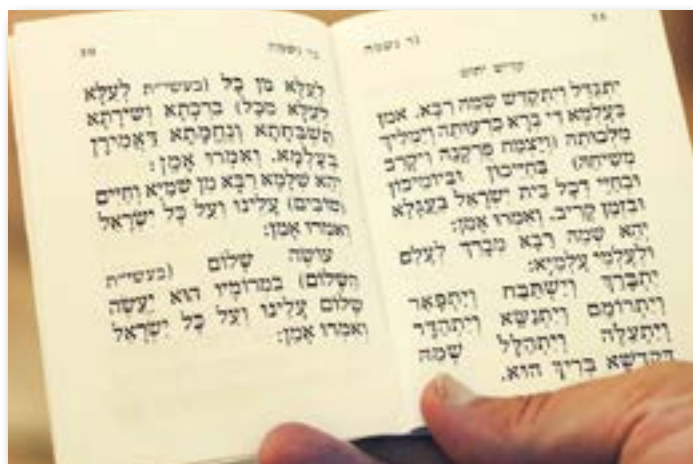 נר נשמה
קדיש יתום
יִתְגַּדַּל וְיִתְקַדַּשׁ שְׁמֵהּ רַבָּא. אמן
בְּעָלְמָא דִּי בְרָא כִרְעוּתֵהּ וְיַמְלִיךְ
מַלְכוּתֵהּ (וְיַצְמַח פֻּרְקָנֵהּ וִיקָרֵב
מְשִׁיחֵהּ) בְּחַיֵּיכוֹן וּבְיוֹמֵיכוֹן
וּבְחַיֵּי דְכָל בֵּית יִשְׂרָאֵל בַּעֲגָלָא
וּבִזְמַן קָרִיב. וְאִמְרוּ אָמֵן:
יְהֵא שְׁמֵהּ רַבָּא מְבָרַךְ לְעָלַם
וּלְעָלְמֵי עָלְמַיָּא:
יִתְבָּרַךְ וְיִשְׁתַּבַּח וְיִתְפָּאַר
וְיִתְרוֹמַם וְיִתְנַשֵּׂא וְיִתְהַדָּר
וְיִתְעַלֶּה וְיִתְהַלָּל שְׁמֵהּ
דְּקֻדְשָׁא בְּרִיךְ הוּא.
נר נשמה
לְעֵלָּא מִן כָּל (בעשי״ת לְעֵלָּא
לְעֵלָּא מִכָּל) בִּרְכָתָא וְשִׁירָתָא
תֻּשְׁבְּחָתָא וְנֶחֱמָתָא דַּאֲמִירָן
בְּעָלְמָא. וְאִמְרוּ אָמֵן:
יְהֵא שְׁלָמָא רַבָּא מִן שְׁמַיָּא וְחַיִּים
(טוֹבִים) עָלֵינוּ וְעַל כָּל יִשְׂרָאֵל
וְאִמְרוּ אָמֵן:
עוֹשֶׂה שָׁלוֹם (בעשי״ת
הַשָּׁלוֹם) בִּמְרוֹמָיו הוּא יַעֲשֶׂה
שָׁלוֹם עָלֵינוּ וְעַל כָּל יִשְׂרָאֵל
וְאִמְרוּ אָמֵן: